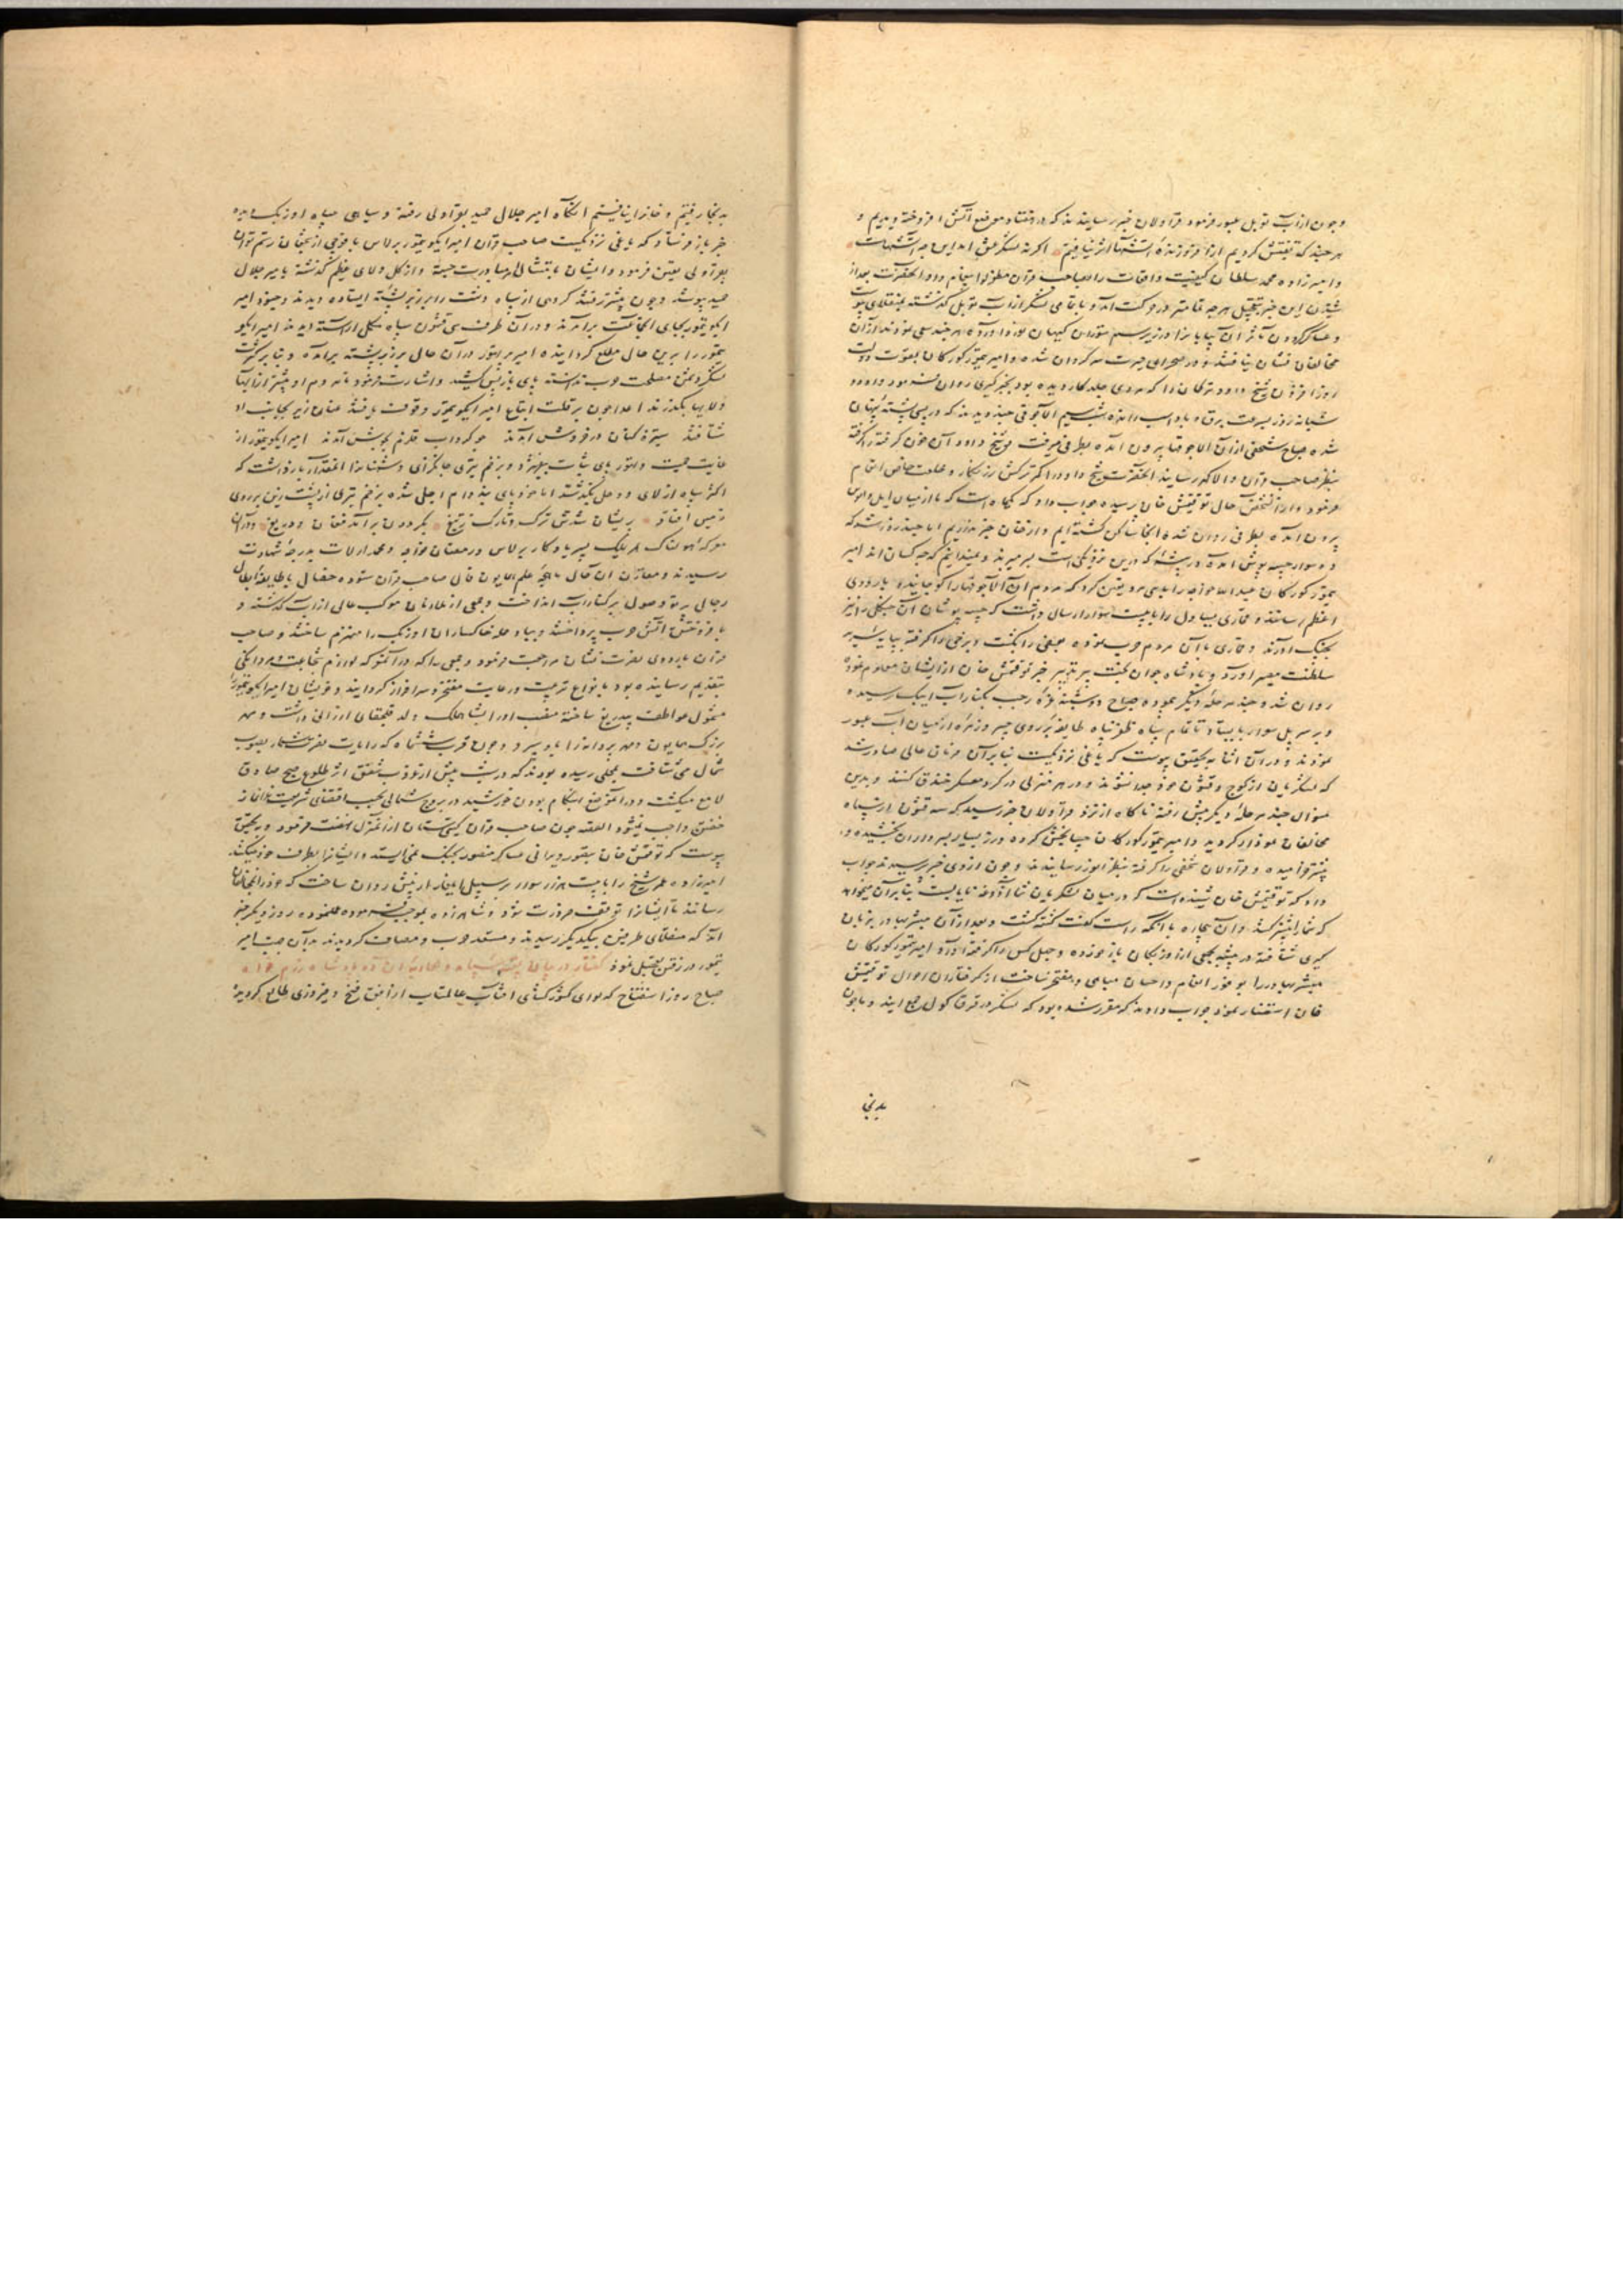 و چون از آب توبل عبور فرمود قراولان خبر رسانیدند که در هفتاد موضع آتش افروخته دیدیم و
هر چند که تفتیش کردیم از افروزنده آتشها اثر نیافتیم اگر نه لشکر عشق
و امیرزاده محمد سلطان کیفیت واقعات را بصاحب قران پیغام داد و آنحضرت بعد از
شنیدن این خبر بتعجیل هر چه تمامتر در حرکت آمد و با تمامی لشکر از آب توبل گذشته
و عساکر گردون مآثر آن بیابانرا
مخالفان نشان نیافتند و در صحرای حیرت سرگردان شده و امیر تیمور کورکان بقوت دولت
روز افزون شیخ داود ترکمان را که مردی جلد کار دیده بود بخبر گیری روان فرمود و داود
شبانه روز بسرعت برق و باد اسب رانده شب سیم الاچوقی چند دید که در پس پشته پنهان
شده صباح شخصی از آن الاجوقها بیرون آمده بطرفی میرفت شیخ داود آن خون گرفته را گرفته
بنظر صاحب قران والاگهر رسانید آنحضرت شیخ داود را ترکش زرنگار و خلعت خاص انعام
فرمود و از آن شخص حال توقتمش خان پرسیده جواب داد که یکماه است که ما از میان ایل و الوس
بیرون آمده بطرفی روان شده اینجا ساکن گشته ایم و از خان خبر نداریم اما چند روز شد که
ده سوار جیبه پوش آمده در بیشه که درین نزدیکی است بسر میبرند و نمیدانیم که چه کسان اند امیر
تیمور کورکان عید خواجه را با سی مرد تعیین کرد که مردم آن الاجوقها را کوچانیده باردوی
اعظم رسانند و قماری یساول را با بیست سوار ارسال داشت که جیبه پوشان آن جنگل را نیز
بچنگ آورند و قماری با آن مردم حرب نموده بعضی را بکشت و برخی را گرفته بپایه سریر
سلطنت مصیر آورد و پادشاه جوان بخت پیر تدبیر خبر توقتمش خان از ایشان معلوم نموده
روان شد و چند مرحله دیگر پیموده صباح دوشنبه غره رجب بکنار آب رسیده
و بر سر پل سوار بایستاد تا تمام سپاه ظفر پناه طایفه بر روی جسر و زمره از میان آب عبور
نمودند و در آن اثنا بتحقیق پیوست که یاغی نزدیکست بنابر آن فرمان عالی صادر شد
که لشکریان از کوچ و قشون خود جدا نشوند و در هر منزلی در گرد معسکر خندق کنند و بدین
منوال چند مرحله دیگر پیش رفته ناگاه از نزد قراولان خبر رسید که سه قشون از سپاه
مخالفان نمودار گردید و امیر تیمور کورکان جیبا بخش کرده و زر بسیار بسرداران بخشیده
پیشتر خرامیده و قراولان شخصی را گرفته بنظر انور رسانیدند و چون از وی خبر پرسیدند جواب
داد که توقتمش خان شنیده است که در میان لشکریان شما آذوقه نایابست بنابر آن میخواهد
که شما را پیشتر کشد و آن بیچاره با آنکه راست گفت کشته گشت و بعد از آن مبشر بهادر بزبان
گیری شتافته در بیشه بجمعی از اوزبکان باز خورده و چهل کس را گرفته آورد و امیر تیمور کورکان
مبشر بهادر را بوفور انعام و احسان مباهی و مفتخر ساخت از گرفتاران احوال توقتمش
خان استفسار نمود جواب دادند که مقرر شده بود که لشکر در قرق کول جمع آیند و ما چون
بدنجا
بدنجا رفتیم و خانرا نیافتیم آنگاه امیر جلال حمید بقراولی رفته و سیاهی سپاه اوزبک دیده
خبر باز فرستاد که یاغی نزدیکست صاحب قران امیر ایکو تیمور برلاس با فوجی از شجعان رستم توان
بقراولی تعیین فرمود و ایشان بامتثال مبادرت جسته و از کل و لای عظیم گذشته بامیر جلال
حمید پیوستند و چون پیشتر رفتند گروهی از سپاه دشت را بر زبر پشته ایستاده دیدند و جنود امیر
ایکو تیمور بجای ایشان برآمدند و در آن طرف سی قشون سپاه مکمل آراسته دیدند امیر ایکو
تیمور را برین حال مطلع گردانیده امیر برلاس در آن حال بر زبر پشته برآمده و بنابر کثرت
لشکر دشمن مصلحت حرب ندانسته پای باز پس کشید و اشارت فرمود تا مردم او پیشتر از آبها
و لایها بگذرند اعدا چون بر قلت اتباع امیر ایکو تیمور وقوف یافتند عنان ریز بجانب او
شتافتند ستیزه کنان در خروش آمدند چو گرداب قلزم بجوش آمدند امیر ایکو تیمور از
غایت حمیت و تهور پای ثبات بیفشرد و بزخم تیر جانگزای دشمنانرا آنمقدار باز داشت که
اکثر سپاه از لای و وحل بگذشتند اما خود پای بند دام اجل شده بزخم تیری از پشت زین بر روی
زمین افتاد پریشان شدش ترک و تارک بتیغ بگردون برآمد فغان و دریغ و در آن
معرکه هولناک هر یک پسر یادگار برلاس و رمضان خواجه و محمد ارلات بدرجه شهادت
رسیدند و مقارن آن حال ماهچه علم همایون فال صاحب قران ستوده خصال با طایفه ابطال
رجال پرتو وصول بر کنار آب انداخت و جمعی از ملازمان موکب عالی از آب گذشته و
بافروختن آتش حرب پرداختند و بباد حمله خاکساران اوزبک را منهزم ساختند و صاحب
قران باردوی نصرت نشان مراجعت فرمود و جمعی را که در آن معرکه لوازم شجاعت و مردانگی
بتقدیم رسانیده بود بانواع تربیت و رعایت مفتخر و سرافراز گردانید و خویشان امیر ایکو تیمور را
مشمول عواطف بیدریغ ساخته منصب او را بشاهملک ولد قلجقای ارزانی داشت و مهر
بزرگ همایون و مهر پروانه را باو سپرد و چون قرب ششماه که رایات نصرت شعار بصوب
شمال می شتافت بمحلی رسیده بودند که در شب پیش از غروب شفق اثر طلوع صبح صادق
لامع میگشت و در آنموضع هنگام بودن خورشید در بروج شمالی بحسب اقتضای شریعت غرا نماز
خفتن واجب نمیشود القصه چون صاحب قران گیتی ستان از آن منزل نهضت فرمود و بتحقیق
پیوست که توقتمش خان بتصور ویرانی عساکر منصور بجنگ نمی ایستد و ایشانرا بطرف خود میکشد
امیرزاده عمر شیخ را با بیست هزار سوار بر سبیل ایلغار از پیش روان ساخت که خود را بمخالفان
رسانند تا ایشانرا توقف ضرورت شود و شاهزاده بموجب فرموده عمل نموده روز دیگر خبر
آمد که منقلای طرفین بیکدیگر رسیدند و مستعد حرب و مصاف گردیدند بدان جهت امیر
تیمور در رفتن تعجیل نمود گفتار در بیان سپاه و محاربه آن دو پادشاه رزم خواه
صباح روز استفتاح که لوای کشور گشای آفتاب عالمتاب از افق فتح و فیروزی طالع گردید